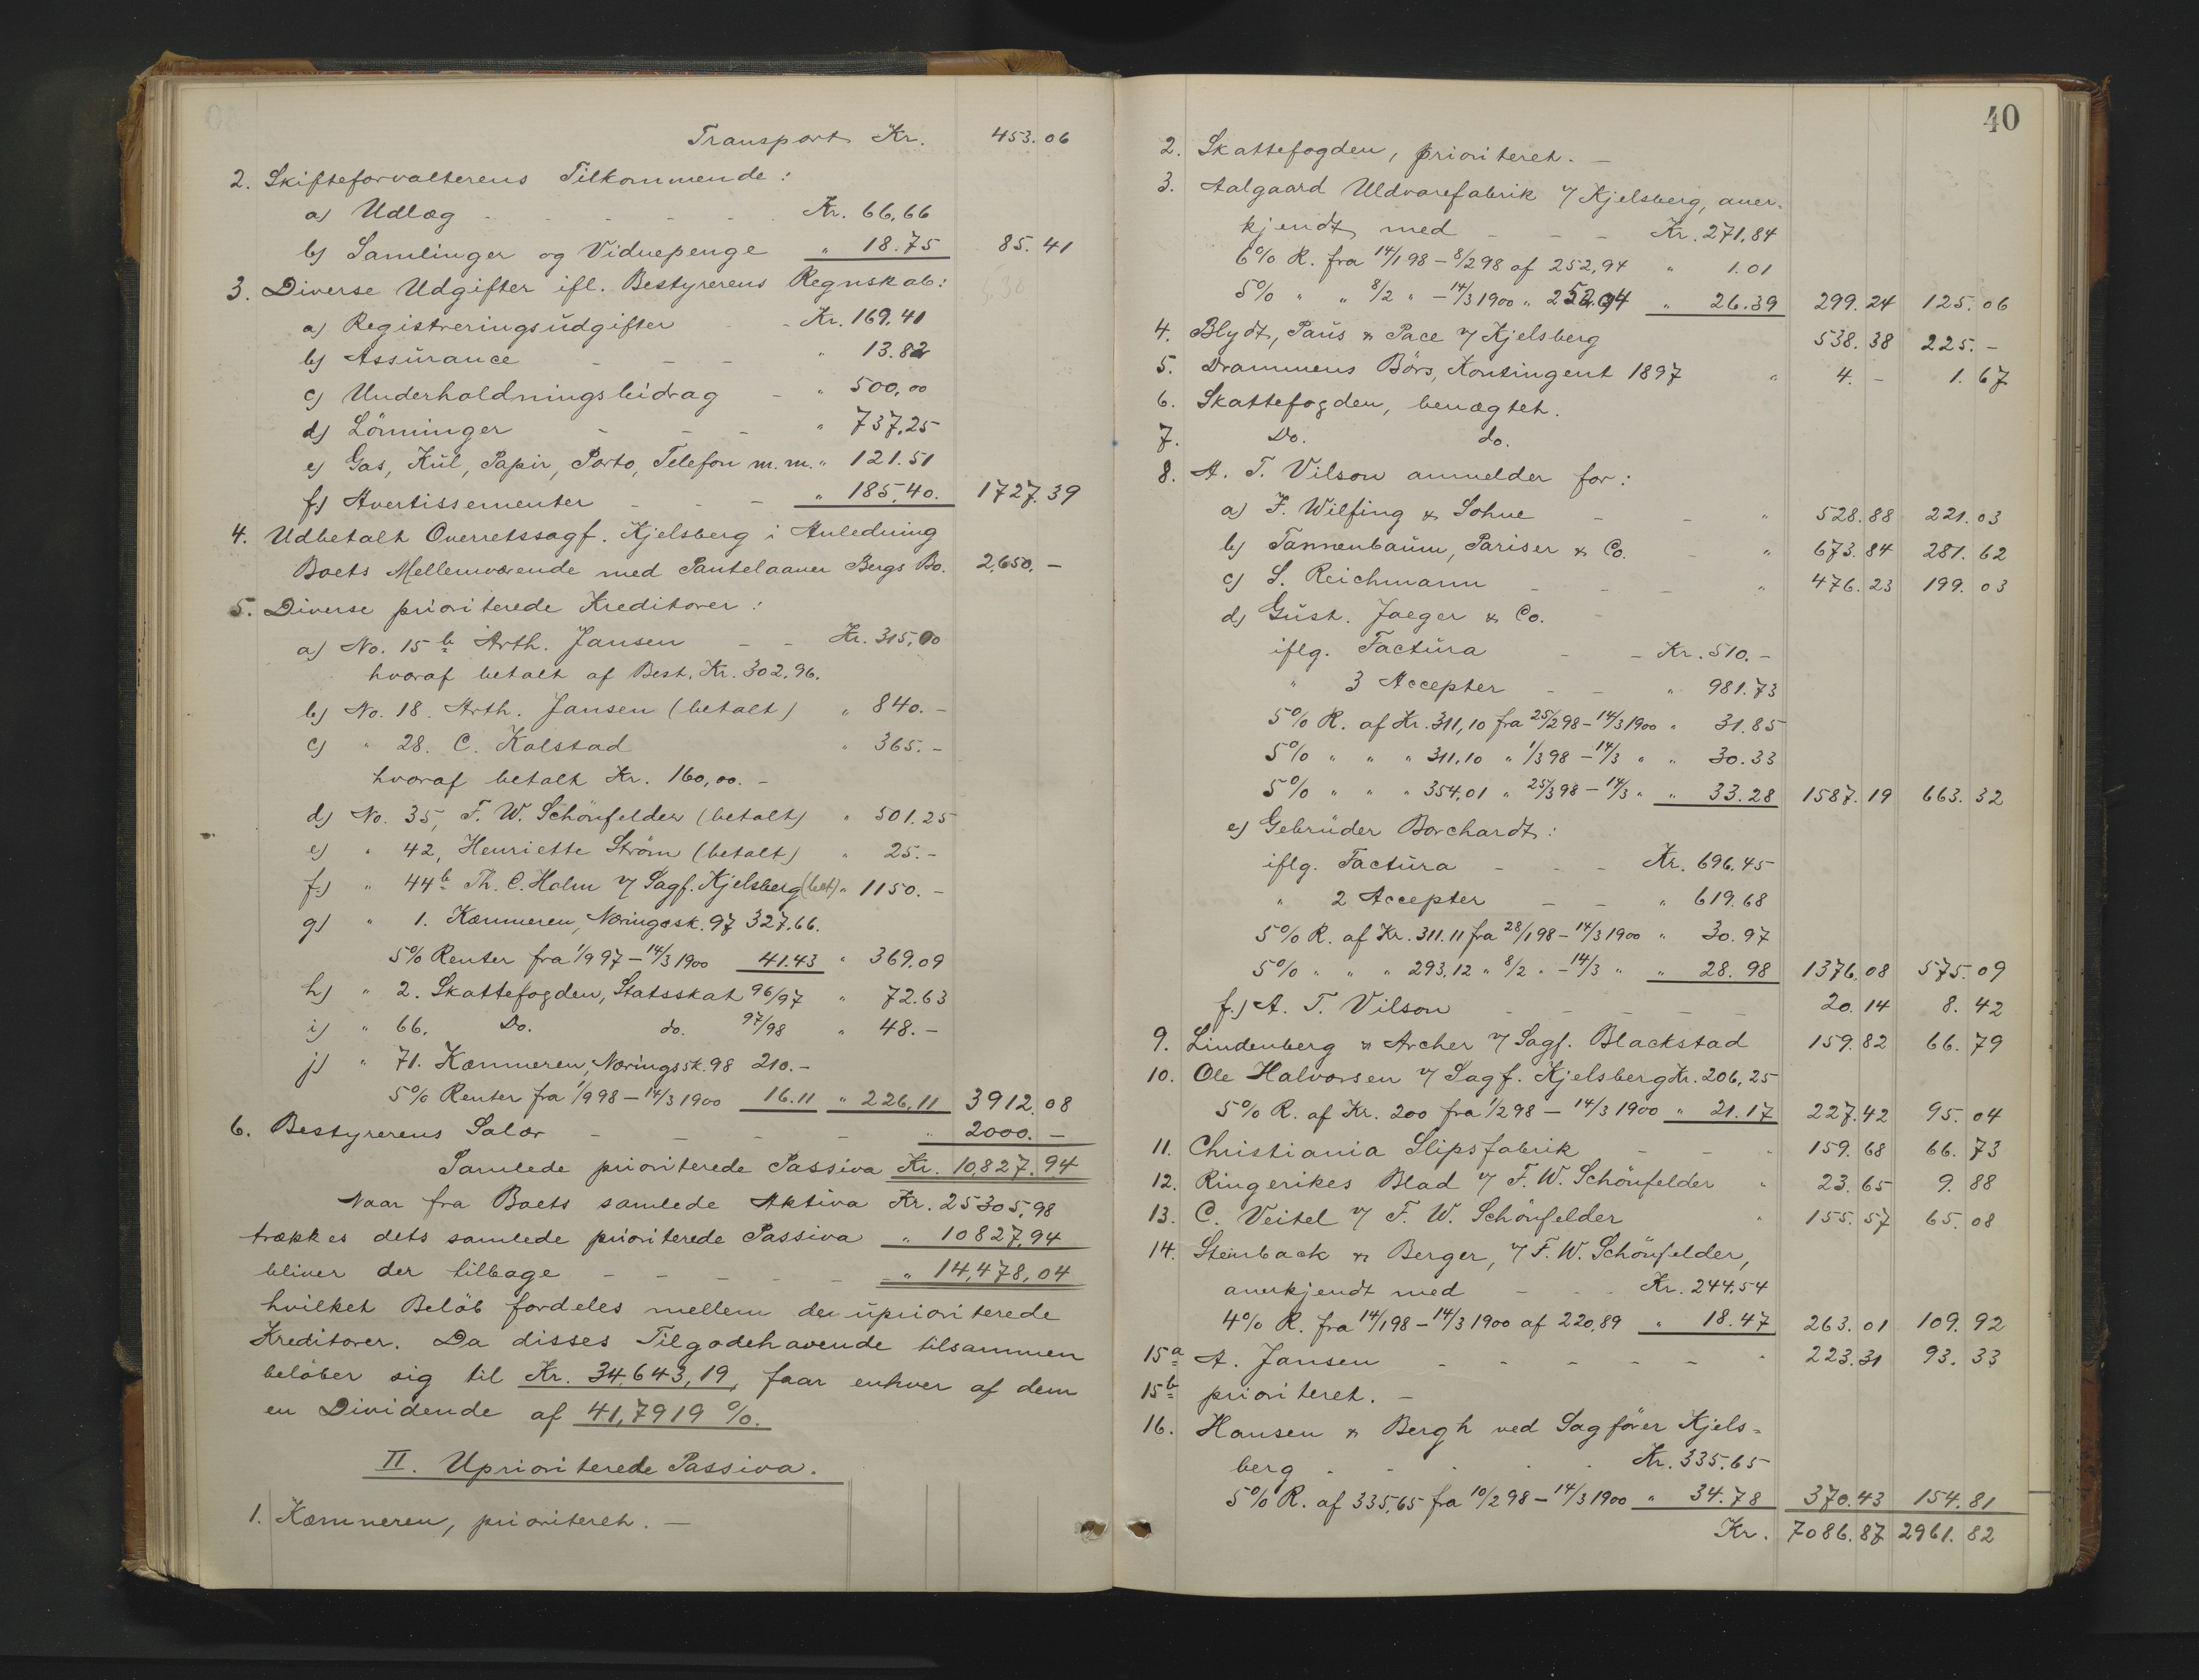 Transport Kr. 453.06
2. Skifteforvalterens Tilkommende:
a) Udlæg - - - - - Kr. 66,66
b) Samlinger og Vidnepenge " 18.75 85.41
3. Diverse Udgifter ifl. Bestyrerens Regnskab:
a) Registreringsudgifter - Kr. 169.41
b) Assurance - - - " 13.82
c) Underholdningsbidrag - " 500,00
d) Lönninger - - - " 737,25
e) Gas, Kul, Papir, Porto, Telefon m.m. " 121.51
f.) Avertissementer - - - " 185,40. 1727.39
4. Udbetalt Overretssagf. Kjelsberg i Anledning
Boets Mellemværende med Pantelaaner Bergs Bo. 2,650. -
5. Diverse prioriterede Kreditorer:
a) No. 15 b Arth. Jansen - - Kr. 315,00
hvoraf betalt af Best. Kr. 302.96.
b) No. 18. Arth. Jansen (betalt) " 840. -
c) " 28. C. Kolstad " 365. -
hvoraf betalt Kr. 160,00. -
d) No. 35, F. W. Schönfelder (betalt) " 501.25
e) " 42, Henriette Ström (betalt) " 25. -
f.) " 44 b Th. C. Holm v/ Sagf. Kjelsberg (bet) " 1150. -
g) " 1. Kæmneren, Næringssk. 97 327.66.
5% Renter fra 1/9 97 - 14/3 1900 41.43 " 369.09
h) " 2. Skattefogden, Statsskat 96/97 " 72.63
i) " 66. Do. do. 97/98 " 48. -
j) " 71. Kæmneren, Næringssk. 98 210. -
5% Renter fra 1/9 98 - 14/3 1900 16.11 " 226,11 3912.08
6. Bestyrerens Salær - - - - " 2000. -
Samlede prioriterede Passiva Kr. 10,827.94
Naar fra Boets samlede Aktiva Kr. 25305,98
trækkes dets samlede prioriterede Passiva " 10827,94
bliver der tilbage - - - - - " 14,478,04
hvilket Belöb fordeles mellem de upriori terede
Kreditorer. Da disses Tilgodehavende tilsammen
belöber sig til Kr. 34,643,19, faar enhver af dem
en Dividende af 41,7919 %.
II. Uprioriterede Passiva.
1. Kæmneren, prioriteret. -
40
2. Skattefogden, prioriteret. -
3. Aalgaard Uldvarefabrik v/ Kjelsberg, aner-
kjendt med - - - Kr. 271,84
6% R. fra 14/1 98 - 8/2 98 af 252,94 " 1.01
5% " " 8/2 " - 14/3 1900 " 252.94 " 26.39 299.24 125.06
4. Blydt, Paus & Pace v/ Kjelsberg 538.38 225. -
5. Drammens Börs, Kontingent 1897 " 4. - 1.67
6. Skattefogden, benægtet.
7. Do. do.
8. A. T. Vilson anmelder for:
a) F. Wilfing & Sohne - - " 528.88 221.03
b) Tannenbaum, Pariser & Co. - " 673.84 281.62
c) S. Reichmann - - - " 476.23 199.03
d) Gust. Jaeger & Co. -
iflg. Factura - - Kr. 510. -
" 3 Accepter - - " 981.73
5% R. af Kr. 311,10 fra 25/2 98 - 14/3 1900 " 31.85
5% " " " 311.10 " 1/3 98 - 14/3 " " 30.33
5% " " " 354,01 " 25/3 98 - 14/3 " " 33.28 1587.19 663.32
e) Gebrüder Borchardt:
iflg. Factura - - - Kr. 696.45
" 2 Accepter - - " 619.68
5% R. af Kr. 311.11 fra 28/1 98 - 14/3 1900 " 30.97
5% " " " 293.12 " 8/2 " - 14/3 " " 28.98 1376.08 575.09
f.) A. T. Vilson - - - - - 20.14 8.42
9. Lindenberg & Archer v/ Sagf. Blackstad 159.82 66.79
10. Ole Halvorsen v/ Sagf. Kjelsberg Kr. 206,25
5% R. af Kr. 200 fra 1/2 98 - 14/3 1900 " 21.17 227.42 95.04
11. Christiania Slipsfabrik - - " 159.68 66.73
12. Ringerikes Blad v/ F. W. Schönfelder " 23.65 9.88
13. C. Veitel v/ F. W. Schönfelder " 155.57 65.08
14. Steinback & Berger, v/ F. W. Schönfelder,
anerkjendt med - - - Kr. 244.54
4% R. fra 14/1 98 - 14/3 1900 af 220,89 " 18.47 263.01 109.92
15 a A. Jansen - - - - - " 223.31 93.33
15 b prioriteret. -
16. Hansen & Bergh ved Sagförer Kjels-
berg - - - - - Kr. 335.65
5% R. af 335,65 fra 10/2 98 - 14/3 1900 " 34.78 370.43 154.81
Kr. 7086.87 2961.82